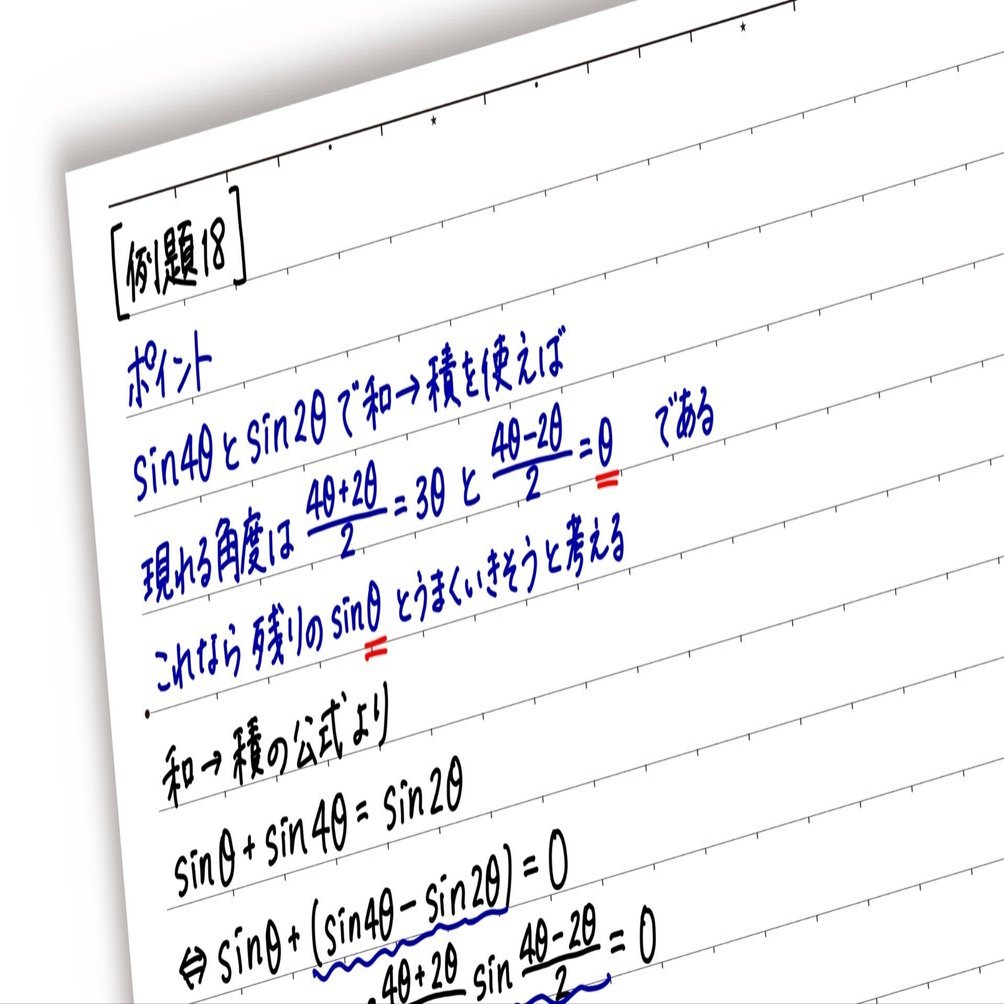 [例題18]
ポイント
sin4θとsin2θで和→積を使えば
現れる角度は (4θ+2θ)/2 = 3θ と (4θ-2θ)/2 = θ である
これなら残りのsinθとうまくいきそうと考える
和→積の公式より
sinθ + sin4θ = sin2θ
⇔ sinθ + (sin4θ - sin2θ) = 0
(4θ+2θ) sin (4θ-2θ)/2 = 0